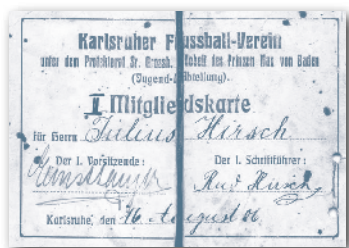 Karlsruher Fussball-Verein
unter dem Protektorat Sr. Grossh. Hoheit des Prinzen Max von Baden
(Jugend-Abteilung).
I Mitgliedskarte
für Herrn Julius Hirsch
Der I. Vorsitzende: Der I. Schriftführer:
Rud Hirsch
Karlsruhe, den 16 August 06